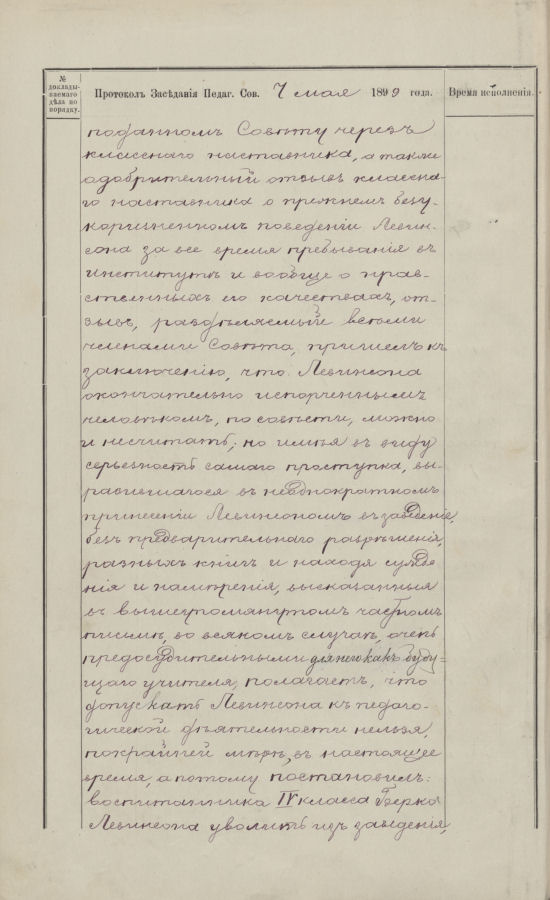 №
доклады-
ваемаго
дѣла по
порядку.
Протоколъ Засѣданія Педаг. Сов. 7 мая 1899 года.
Время исполненія.
поданномъ Совѣту черезъ
класснаго наставника, а также
одобрительный отзывъ классна-
го наставника о прежнемъ безу-
коризненномъ поведеніи Левин-
сона за все время пребыванія въ
институтѣ и вообще о нрав-
ственныхъ его качествахъ, от-
зывъ, раздѣляемый всѣми
членами Совѣта, пришелъ къ
заключенію, что Левинсона
окончательно испорченнымъ
человѣкомъ, по совѣсти, можно
и несчитать; но имѣя въ виду
серьезность самаго проступка, вы-
разившагося въ неоднократномъ
принесеніи Левинсономъ въ заведеніе,
безъ предварительнаго разрѣшенія,
разныхъ книгъ и находя сужде-
нія и намѣренія, высказанныя
въ вышеупомянутомъ частномъ
письмѣ, во всякомъ случаѣ, очень
предосудительными для него какъ буду-
щаго учителя, полагаетъ, что
допускать Левинсона къ педаго-
гической дѣятельности нельзя,
покрайней мѣрѣ, въ настоящее
время, а потому постановилъ:
воспитанника IV класса Берка
Левинсона уволить изъ заведенія,